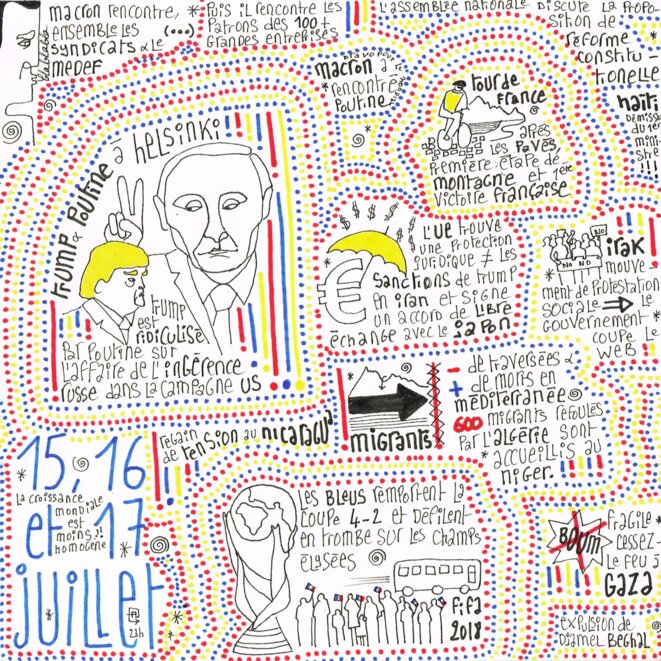 macron rencontre,
ensemble les (...)
syndicats & le
MEDEF
Puis il rencontre les
Patrons des 100 +
Grandes entreprises
L'assemblée nationale discute la propo-
sition de
réforme
constitu-
tionnelle
macron a
rencontré
Poutine
tour de
France
après
les Pavés
première étape de
montagne et 1ère
victoire française
haïti
démissi
du 1er
mini-
stre
!!!
trump & Poutine à helsinki
trump
est
ridiculisé
Par Poutine sur
l'affaire de l'ingérence
russe dans la campagne US
L'UE trouve
une protection
juridique ≠ les
sanctions de trump
en iran et signe
un accord de libre
échange avec le japon
€
$ $ $ $ $ $
NO
NO NO
irak
mouve-
ment de Protestation
sociale ➡ le
gouvernement
coupe le
web
migrants
- de traversées &
+ de morts en
méditerranée
600 migrants refoulés
Par l'algérie sont
accueillis au
niger.
regain
de tension au nicaragua
15, 16
et 17
juillet
La croissance
mondiale
est
moins
homogène
23h
Les Bleus remportent la
coupe 4-2 et défilent
en trombe sur les champs
élysées
Fifa
2018
BOUM
fragile
cessez-
le feu
GAZA
expulsion de
Djamel Beghal